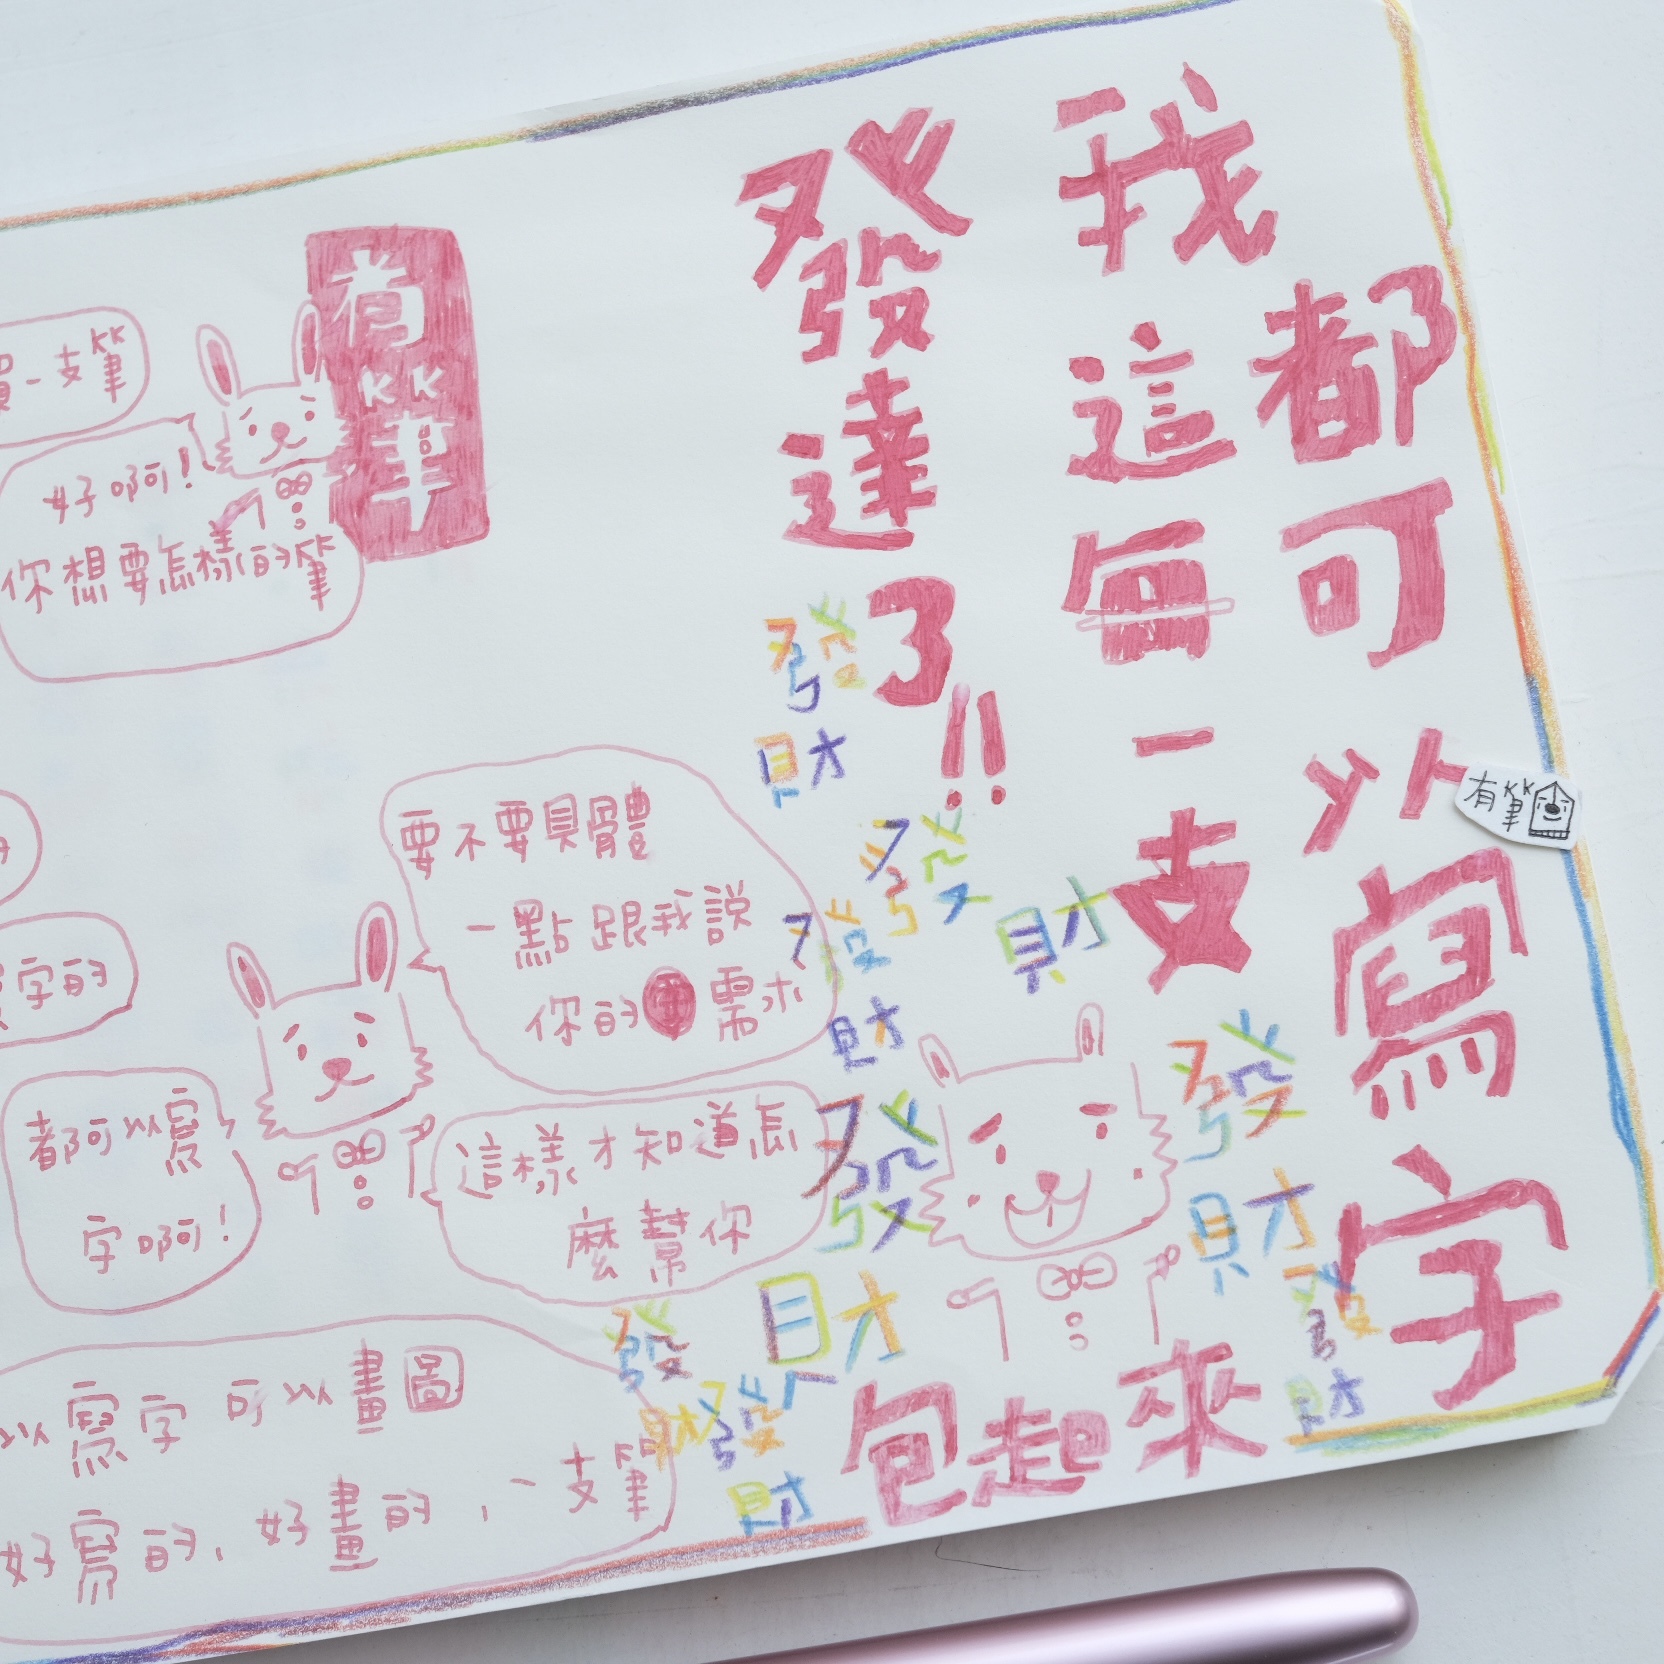 都可以寫字
我這每一支
發達了!!
包起來
有筆
有筆
一支筆
好啊!
你想要怎樣的筆
字的
都可以寫
字啊!
要不要具體
一點跟我說
你的需求
這樣才知道怎
麼幫你
以寫字 可以畫圖
好寫的,好畫的,一支筆
發財
發財
發財
發財
發財
發財
發財
發財